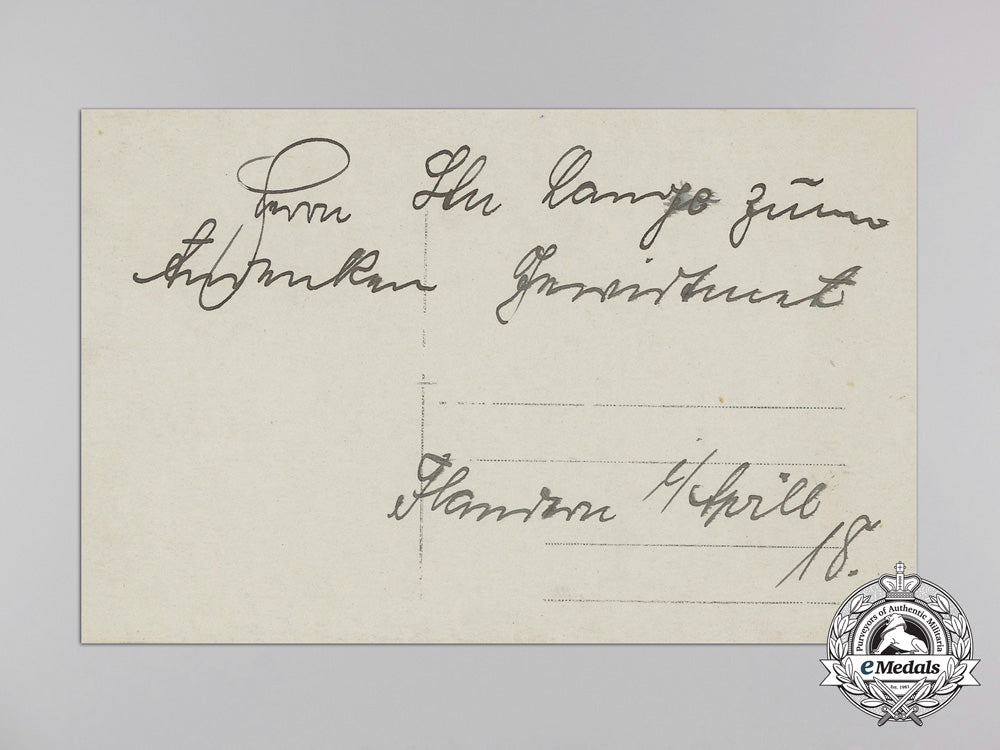 Herrn Ltn Lange zum
Andenken Gewidtmet
Flandern i/April
18.
Purveyors of Authentic Militaria
eMedals
Est. 1983